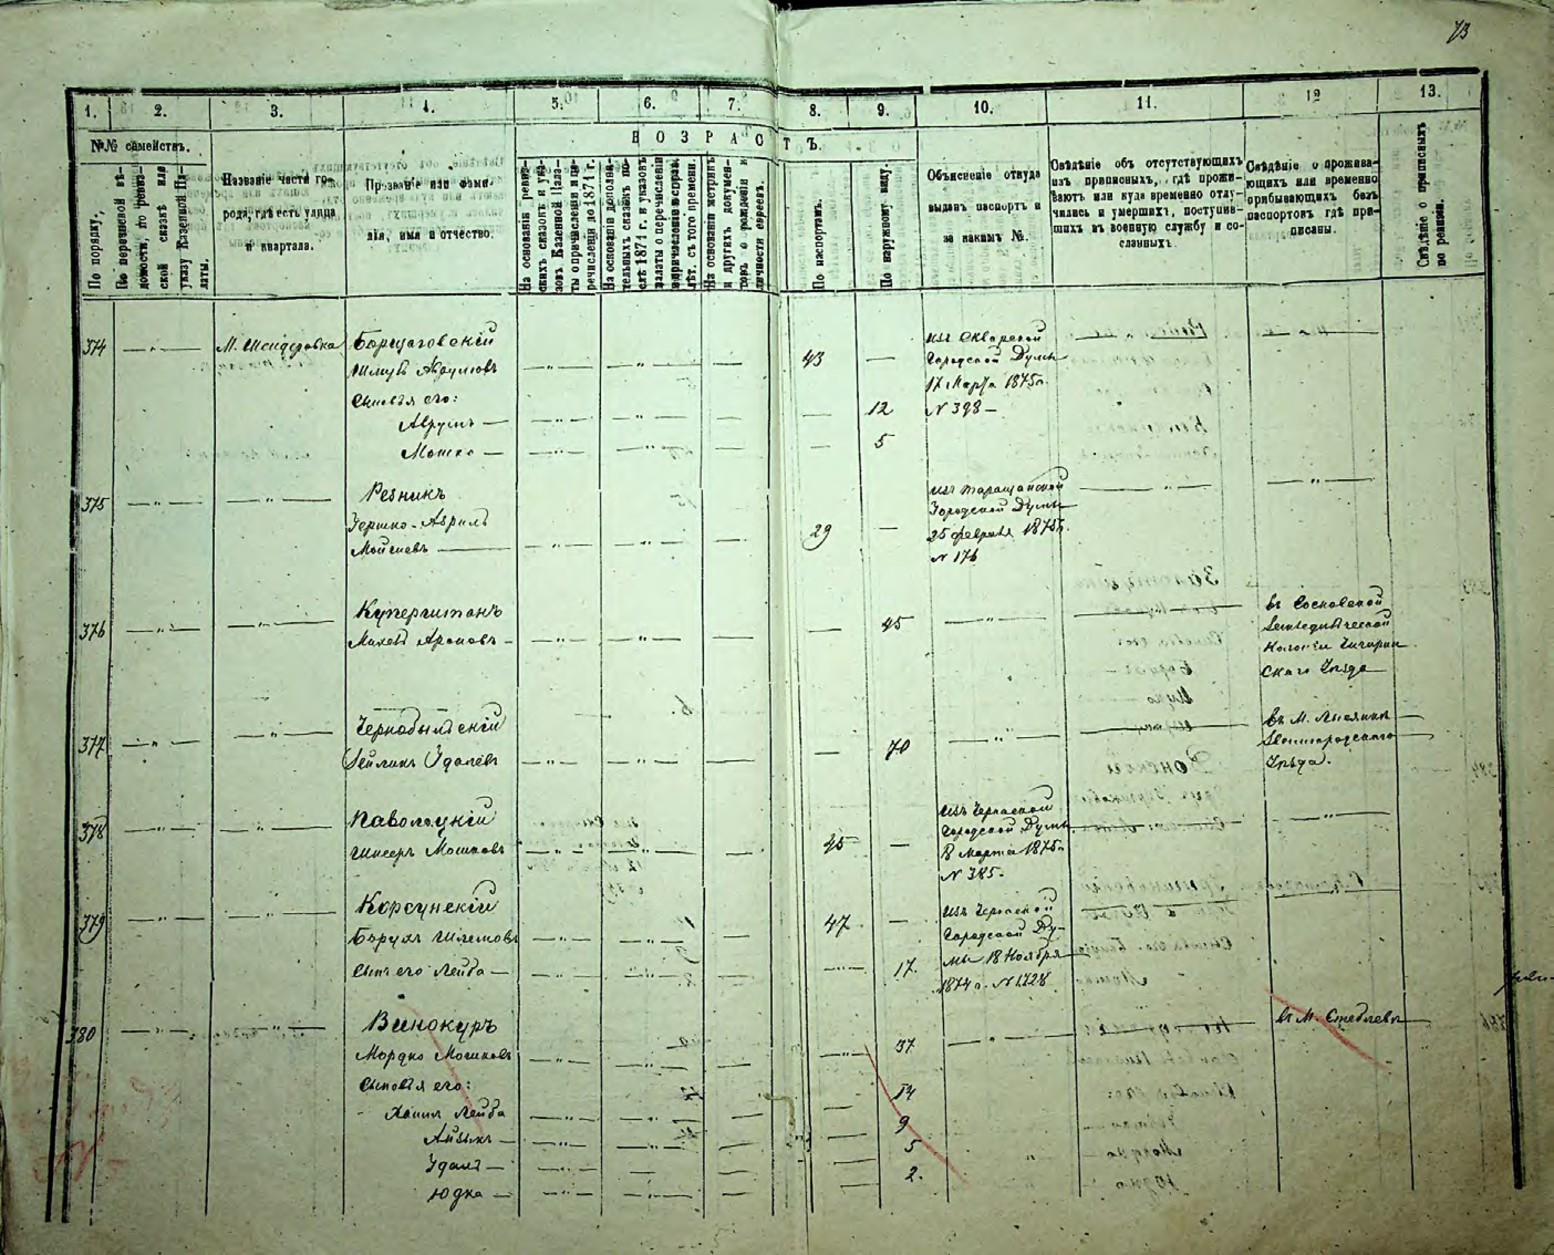 73
1. 2. 3. 4. 5. 6. 7. 8. 9. 10. 11. 12 13.
№№ семействъ.
ВОЗРАСТЪ.
По порядку.
По перечневой вѣ-
домости, по ревиз-
ской сказкѣ или
указу Казенной Па-
латы.
Названіе части го-
рода, гдѣ есть улица
и квартала.
Прозваніе или фами-
лія, имя и отчество.
На основаніи ревиз-
скихъ сказокъ и ука-
зовъ Казенной Пала-
ты о причисленіи и пе-
речисленіи до 1874 г.
На основаніи дополни-
тельныхъ сказокъ по-
слѣ 1874 г. и указовъ
палаты о перечисленіи
лѣт. съ того времени.
На основаніи метрикъ
и другихъ докумен-
товъ о рожденіи и
личности евреевъ.
По паспортамъ.
По наружному виду.
Объясненіе откуда
выданъ паспортъ и
за какимъ №.
Свѣдѣніе объ отсутствующихъ
изъ приписныхъ, гдѣ прожи-
ваютъ или куда временно отлу-
чились и умершихъ, поступив-
шихъ въ военную службу и со-
сланныхъ.
Свѣдѣніе о прожива-
ющихъ или временно
прибывающихъ безъ
паспортовъ гдѣ при-
писаны.
Свѣдѣніе о приписныхъ
по ревизіи.
374 — " — М. Шендеровка Борщаговскій
Аврумовъ — " — — " — — 43 —
Сыновья его:
Аврумъ — — " — — " — — — 12
Мошко — — " — — " — — — 5
изъ Сквирской
Городской Думы
17 Марта 1875 г.
N 398 —
375 — " — — " — Резникъ
Гершко-Аврумъ
Мойсіевъ — — " — — " — — 29 —
изъ Таращанской
Городской Думы
25 февраля 1875 г.
N 176
376 — " — — " — Куперштанъ
Ароновъ — — " — — " — — — 45 — " —
въ Сосновской
Земледѣльческой
Колоніи Чигирин
скаго Уѣзда
377 — " — — " — Чернобыльскій
Зейликъ Удалевъ — " — — " — — — 70 — " —
въ М. Лисянкѣ
Звенигородскаго
Уѣзда.
378 — " — — " — Паволоцкій
Мошковъ — " — — " — — 45 —
изъ Черкаской
Городской Думы
8 Марта 1875 г.
N 385.
379 — " — — " — Корсунскій
Борухъ Шлемовъ — " — — " — — 47 —
Сынъ его Лейба — — " — — " — — — " — 17.
изъ Черкаской
Городской Ду-
мы 18 Ноября
1874 г. N 1728
380 — " — — " — Винокуръ
Мордко Мошковъ — " — — " — 37 — " — въ М. Стеблевѣ
Сыновья его:
Лейба — " — — " — — — 14
Айзыкъ — — " — — " — — — 9
Удалъ — — " — — — — 5
Юдка — — " — — " — — — 2.